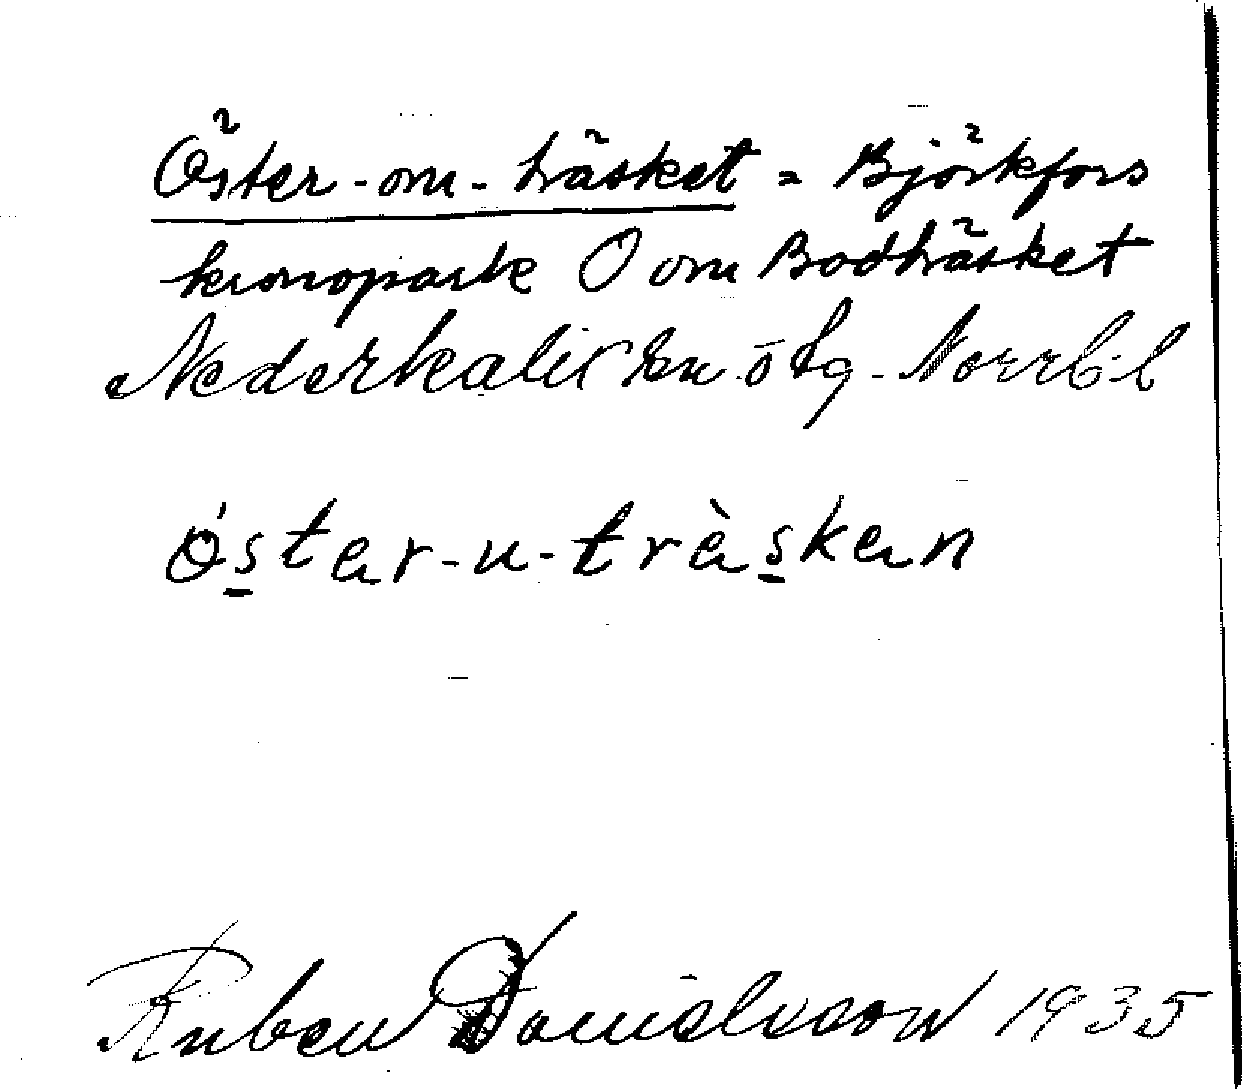 Öster-om-träsket = Björkfors
kronopark O om Bodträsket
Nederkalix sn ö tg. Norrb. l
öster-u-träsken
Ruben Danielsson 1935